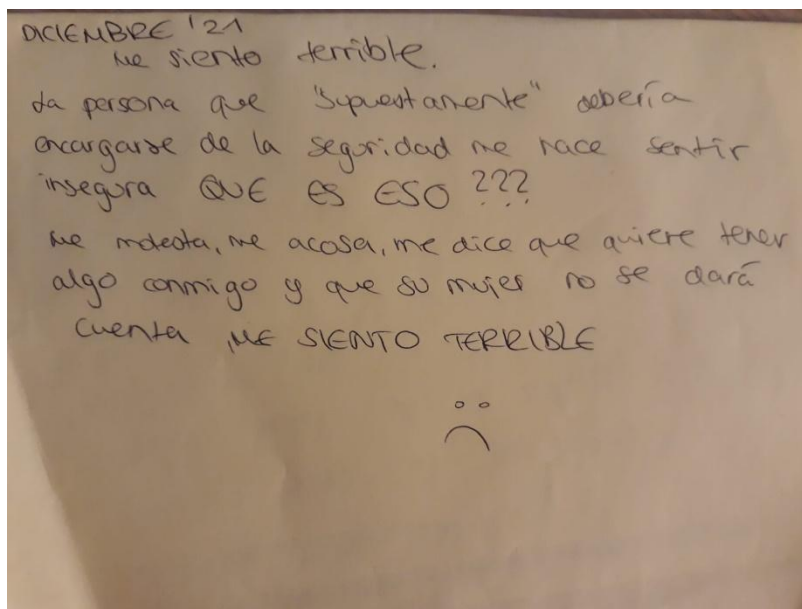 DICIEMBRE '21
Me siento terrible.
La persona que "supuestamente" debería
encargarse de la seguridad me hace sentir
insegura QUE ES ESO ???
Me molesta, me acosa, me dice que quiere tener
algo conmigo y que su mujer no se dará
cuenta, ME SIENTO TERRIBLE